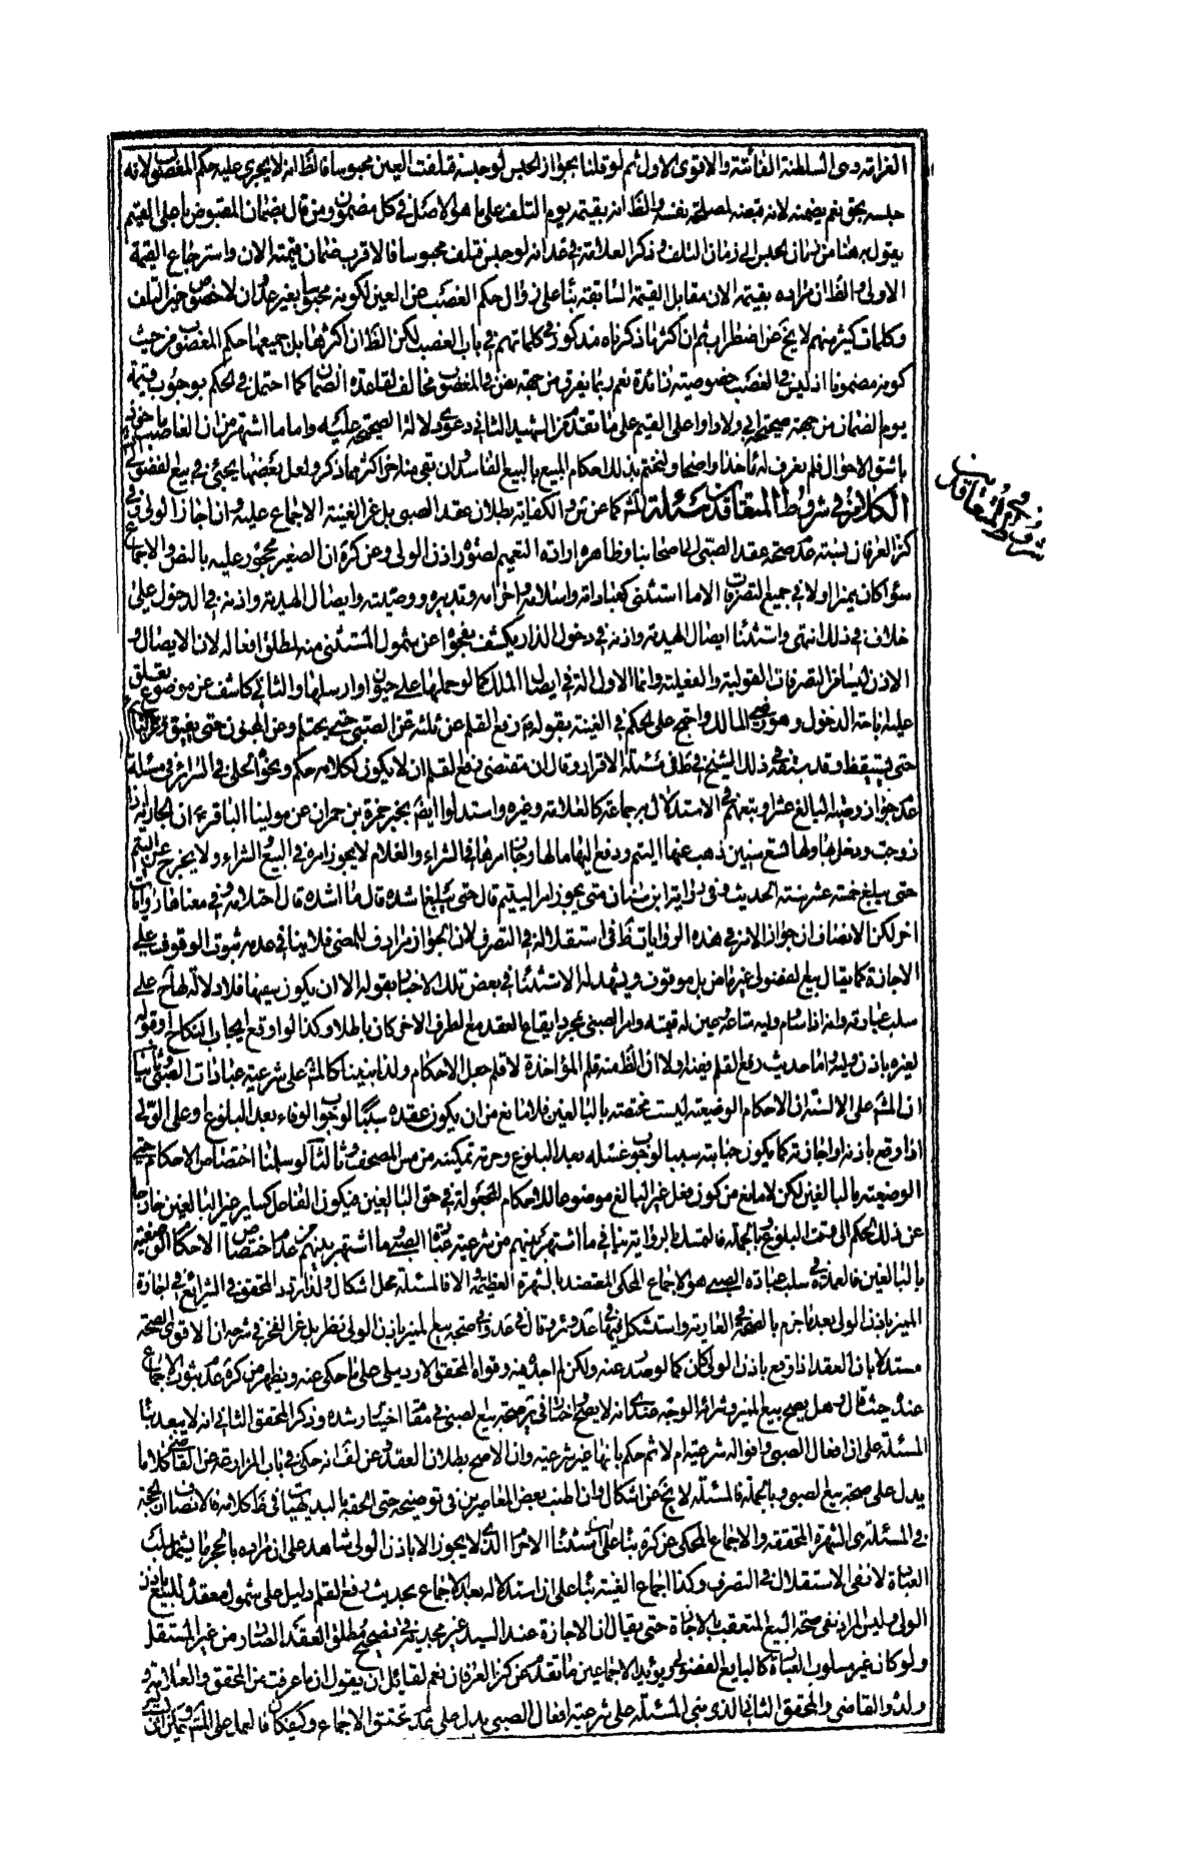 الغرامة وهى السلطنة الفائتة والاقوى الاول ثم لو قلنا بجواز الحبس لو حبسه فتلفت العين محبوسا فالظ انه لا يجرى عليه حكم المغصوب لانه
حبسه بحق نعم يضمنه لانه قبضه لمصلحة نفسه والظ انه بقيمته يوم التلف على ما هو الاصل فى كل مضمون ومن قال بضمان المقبوض باعلى القيم
يقول به هنا من زمان الحبس الى زمان التلف وذكر العلامة فى عد انه لو حبس فتلف محبوسا فالاقرب ضمان قيمته الان واسترجاع القيمة
الاولى والظ ان مراده بقيمته الان مقابل القيمة السابقة بناء على زوال حكم الغصب عن العين لكونه محبوسا بغير عدوان لا خصوص حين التلف
وكلمات كثير منهم لا يخ عن اضطراب ثم ان اكثر ما ذكرناه مذكور فى كلماتهم فى باب الغصب لكن الظ ان اكثرها بل جميعها حكم المغصوب من حيث
كونه مضمونا اذ ليس فى الغصب خصوصية زائدة نعم ربما يفرق من جهة نص فى المغصوب مخالف لقاعدة الضمان كما احتمل فى الحكم بوجوب قيمة
يوم الضمان من جهة صحيحة ابى ولاد او اعلى القيم على ما تقدم من الشهيد الثانى دعوى دلالة الصحيحة عليه واما ما اشتهر من ان الغاصب ماخوذ
باشق الاحوال فلم يعرف له ماخذ واضح ولنختم بذلك احكام المبيع بالبيع الفاسد وان بقى منه اخر اكثر مما ذكر ولعل بعضها يجيئ فى بيع الفضولى
الكلام فى شروط المتعاقدين مسئلة المش كما عن س والكفاية بطلان عقد الصبى بل عن الغنية الاجماع عليه وان اجاز الولى وفى
كنز العرفان نسبة عدم صحة عقد الصبى الى اصحابنا وظاهره ارادة التعميم لصورة اذن الولى وعن كره ان الصغير محجور عليه بالنص والاجماع
سواء كان مميزا او لا فى جميع التصرفات الا ما استثنى كعباداته واسلامه واحرامه وتدبيره ووصيته وايصال الهدية واذنه فى الدخول على
خلاف فى ذلك انتهى واستثناء ايصال الهدية واذنه فى دخول الدار يكشف بفحواه عن شمول المستثنى منه لمطلق افعاله لان الايصال و
الاذن ليسا من التصرفات القولية والفعلية وانما الاول الة فى ايصال الملك كما لو حملها على حيوان وارسلها والثانى كاشف عن موضوع تعلق
عليه اباحة الدخول وهو رضى المالك واحتج على الحكم فى الغنية بقوله ع رفع القلم عن ثلثة عن الصبى حتى يحتلم وعن المجنون حتى يفيق وعن النائم
حتى يستيقظ وقد سبقه فى ذلك الشيخ فى ط فى مسئلة الاقرار وقال ان مقتضى رفع القلم ان لا يكون لكلامه حكم ونحوه الحلى فى السرائر فى مسئلة
عدم جواز وصية البالغ عشرا وتبعهم فى الاستدلال به جماعة كالعلامة وغيره واستدلوا ايضا بخبر حمزة بن حمران عن مولينا الباقر ع ان الجارية اذا
زوجت ودخل بها ولها تسع سنين ذهب عنها اليتم ودفع اليها مالها وجاز امرها فى الشراء والغلام لا يجوز امره فى البيع والشراء ولا يخرج عن اليتم
حتى يبلغ خمسة عشر سنة الحديث وفى رواية ابن سنان متى يجوز امر اليتيم قال حتى يبلغ اشده قال ما اشده قال احتلامه وفى معناها روايات
اخر لكن الانصاف ان جواز الامر فى هذه الروايات ظ فى استقلاله فى التصرف لان الجواز مرادف للمضى فلا ينافى عدمه ثبوت الوقوف على
الاجازة كما يقال بيع الفضولى غير ماض بل موقوف ويشهد له الاستثناء فى بعض تلك الاخبار بقوله الا ان يكون سفيها فلا دلالة لها ح على
سلب عبارته وانه اذا ساوم وليه متاعا وعين له قيمته وامر الصبى بمجرد ايقاع العقد مع الطرف الاخر كان باطلا وكذا لو اوقع ايجاب النكاح او قبوله
لغيره باذن وليه واما حديث رفع القلم ففيه اولا ان الظ منه قلم المؤاخذة لا قلم جعل الاحكام ولذا بنينا كالمش على شرعية عبادات الصبى وثانيا
ان المش على الالسنة ان الاحكام الوضعية ليست مختصة بالبالغين فلا مانع من ان يكون عقده سببا لوجوب الوفاء بعد البلوغ او على الولى
اذا وقع باذنه او اجازته كما يكون جنابته سببا لوجوب غسله بعد البلوغ وحرمة تمكينه من مس المصحف وثالثا لو سلمنا اختصاص الاحكام حتى
الوضعية بالبالغين لكن لا مانع من كون فعل غير البالغ موضوعا للاحكام المجعولة فى حق البالغين فيكون الفاعل كساير غير البالغين خارجا
عن ذلك الحكم الى وقت البلوغ وبالجملة فالتمسك بالرواية ينافى ما اشتهر بينهم من شرعية عبادة الصبى وما اشتهر بينهم من عدم اختصاص الاحكام الوضعية
بالبالغين فالعمدة فى سلب عبارة الصبى هو الاجماع المحكى المعتضد بالشهرة العظيمة والا فالمسئلة محل اشكال ولذا تردد المحقق فى الشرايع فى اجارة
المميز باذن الولى بعد ما جزم بالصحة فى العارية واستشكل فيها فى عد وير وقال فى عد وفى صحة بيع المميز باذن الولى نظر بل عن الفخر فى شرحه ان الاقوى الصحة
مستدلا بان العقد اذا وقع باذن الولى كان كما لو صدر عنه ولكن لم اجده فيه وقواه المحقق الاردبيلى على ما حكى عنه ويظهر من كره عدم ثبوت الاجماع
عنده حيث قال وهل يصح بيع المميز وشراؤه الوجه عندى انه لا يصح واختار فى ير صحة بيع الصبى فى مقام اختبار رشده وذكر المحقق الثانى انه لا يبعد بناء
المسئلة على ان افعال الصبى واقواله شرعية ام لا ثم حكم بانها غير شرعية وان الاصح بطلان العقد وعن لف انه حكى فى باب المزارعة عن القاضى كلاما
يدل على صحة بيع الصبى وبالجملة فالمسئلة لا تخ عن اشكال وان اطنب بعض المعاصرين فى توضيحه حتى الحقه بالبديهيات فى ظ كلامه فالانصاف ان الحجة
فى المسئلة هى الشهرة المحققة والاجماع المحكى عن كره بناء على ان استثناء الاحرام الذى لا يجوز الا باذن الولى شاهد على ان مراده بالحجر ما يشمل سلب
العبارة لا نفى الاستقلال فى التصرف وكذا اجماع الغنية بناء على ان استدلاله بعد الاجماع بحديث رفع القلم دليل على شمول معقده للبيع باذن
الولى وليس المراد نفى صحة البيع المتعقب بالاجازة حتى يقال ان الاجازة عند السيد غير مجدية فى تصحيح مطلق العقد الصادر من غير المستقل
ولو كان غير مسلوب العبارة كالبايع الفضولى ويؤيد الاجماعين ما تقدم عن كنز العرفان نعم لقائل ان يقول ان ما عرفت من المحقق والعلامة و
ولده والقاضى والمحقق الثانى الذى بنى المسئلة على شرعية افعال الصبى يدل على عدم تحقق الاجماع وكيف كان فالعمل على المش ويمكن ان
فى شروط المتعاقدين